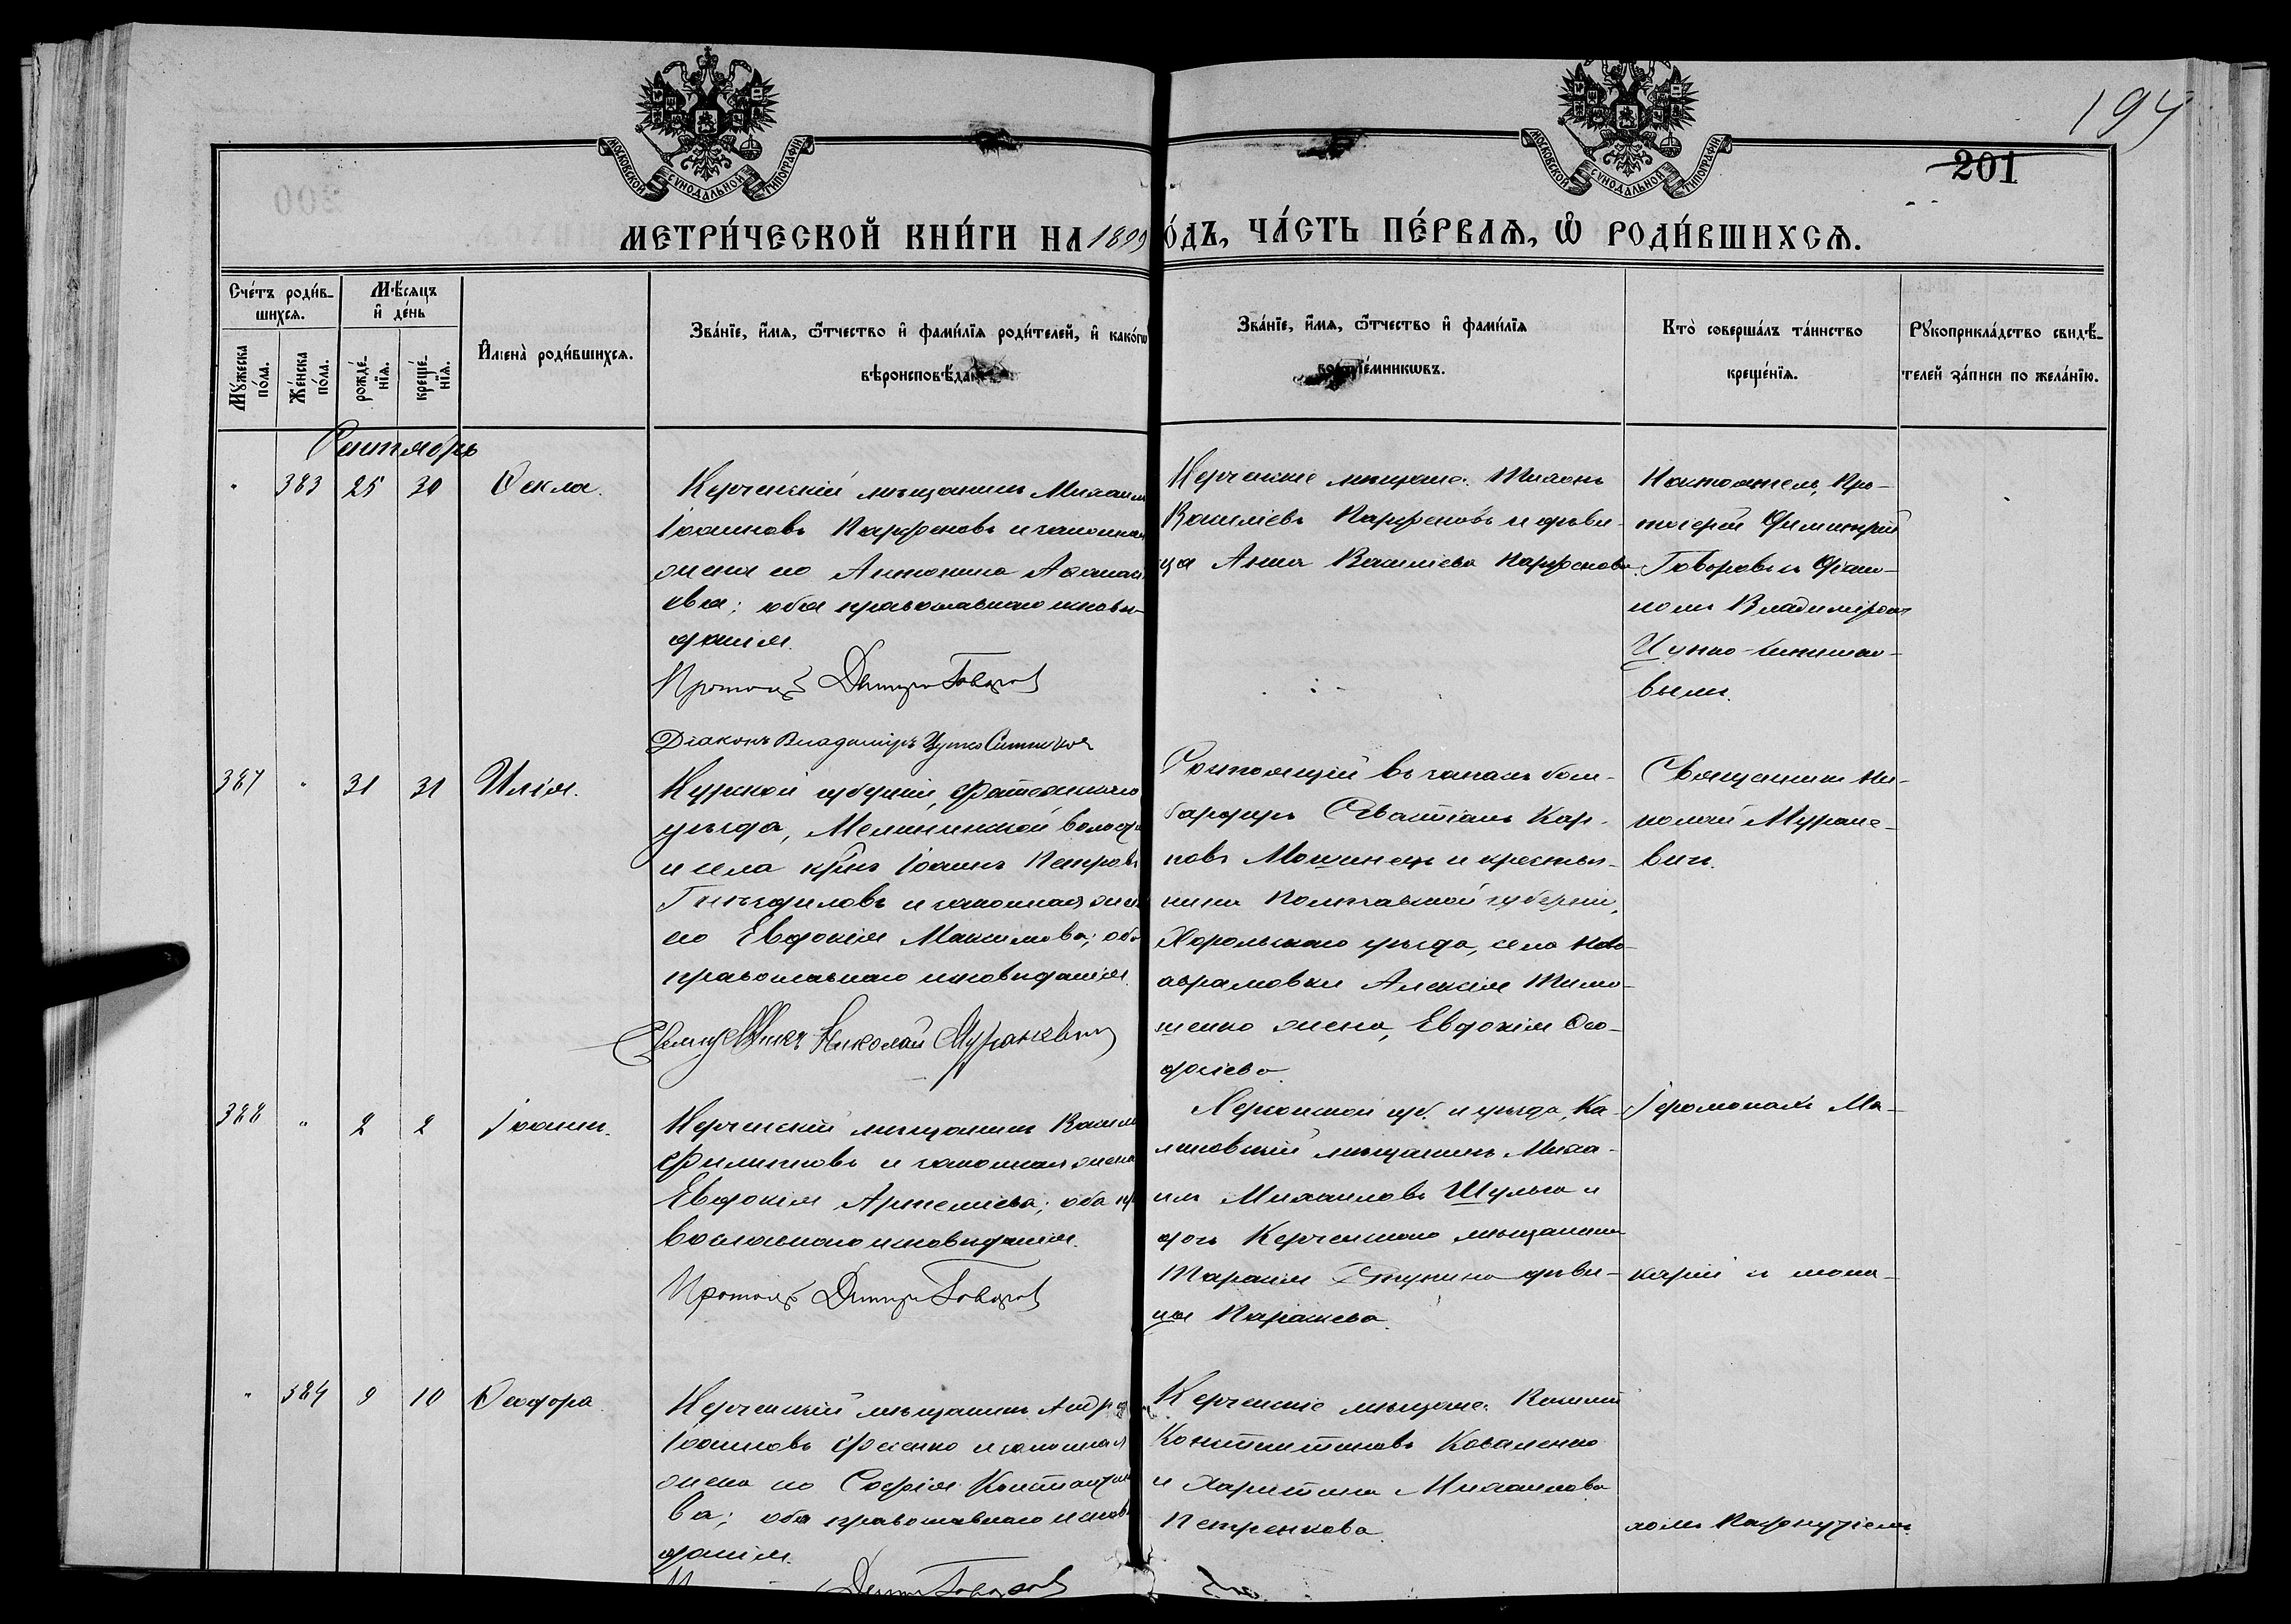 194
201
МОСКОВСКОЙ СУНОДАЛЬНОЙ ТИПОГРАФІИ
МОСКОВСКОЙ СУНОДАЛЬНОЙ ТИПОГРАФІИ
МЕТРИ́ЧЕСКОЙ КНИ́ГИ НА 1899 О́ДЪ, ЧА́СТЬ ПЕ́РВАѦ, Ѡ РОДИ́ВШИХСѦ.
Сче́тъ роди́в-
шихсѧ.
Мѣ́сѧцъ
и де́нь
Мꙋ́жеска
по́ла.
Же́нска
по́ла.
рожде́-
нїѧ.
креще́-
нїѧ.
Имена̀ роди́вшихсѧ.
Зва́нїе, и́мѧ, ѻ́тчество и фами́лїѧ роди́телей, и како́гѡ
вѣроисповѣ́да
Зва́нїе, и́мѧ, ѻ́тчество и фами́лїѧ
воспрїе́мникѡвъ.
Кто̀ соверша́лъ та́инство
креще́нїѧ.
Рꙋкоприкла́дство свидѣ́-
телей за́писи по жела́нїю.
Сентябрь
" 383 25 30 Ѳекла.
Керченскій мѣщанинъ Михаилъ
Іоанновъ Парфеновъ и законная
жена его Антонина
ва; оба православнаго исповѣ-
данія.
Протоіер Димитр Говоров
Діаконъ Владиміръ Цутко Ситников
Керченские мѣщане: Тихонъ
Василіевъ Парфеновъ и дѣви-
ца Анна Василіева Парфенова.
Настоятель, Про-
тоіерей Димитрій
Говоровъ съ Діако-
номъ Владиміромъ
Цутко-Ситнико-
вымъ.
387 " 31 31 Илія.
Курской губерніи, Фатежскаго
уѣзда, Волости
и села кр̃нъ Іоаннъ Петровъ
Гнѣздиловъ и законная жена
его Евдокія Максимова; оба
православнаго исповѣданія.
Священникъ Николай Мураневич
Состоящій въ запасѣ бом-
бардиръ Севастіанъ Кар-
повъ и крестья-
нина Полтавской губерніи,
Хорольскаго уѣзда, села Ново-
аврамовки Алексія Тимо-
шенко жена, Евдокія Ѳео-
досіева.
Священникъ Ни-
колай Муране-
вич.
388 " 2 2 Іоаннъ.
Керченскій мѣщанинъ Василій
Филипповъ и законная жена
Евдокія Артеміева; оба пра
вославнаго исповѣданія.
Протоіер Димитр Говоров
Херсонской губ. и уѣзда, Ка-
мѣщанинъ Миха-
илъ Михаиловъ Шульга и
дочь Керченскаго мѣщанина
Тарасія дѣви-
ца Параскева.
Іеромонахъ Ма-
карій съ мона-
" 384 9 10 Ѳеодора.
Керченскій мѣщанинъ Андрей
Іоанновъ Фесенко и законная
жена его Софія Константино
ва; оба православнаго исповѣ
данія.
Димитр Говоров
Керченские мѣщане:
Константиновъ Коваленко
и Харитина Михаилова
Петренкова.
хомъ Пафнутіемъ.